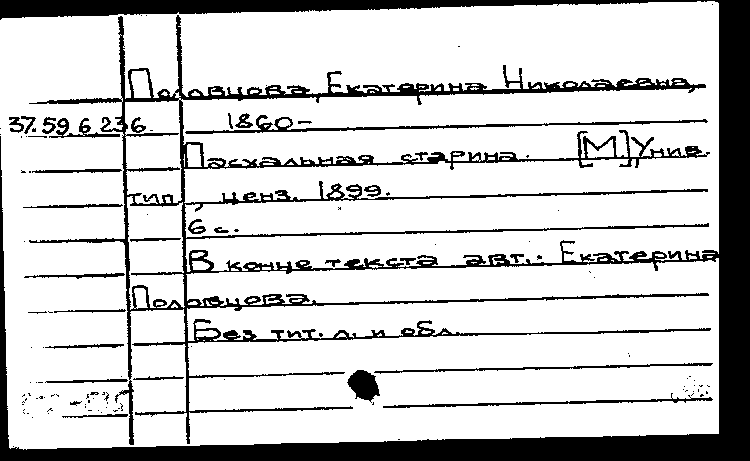 Половцова, Екатерина Николаевна,
37.59.6.236. 1860-
Пасхальная старина. [М.], Унив.
тип., ценз. 1899.
6 с.
В конце текста авт.: Екатерина
Половцова.
Без тит. л. и обл.